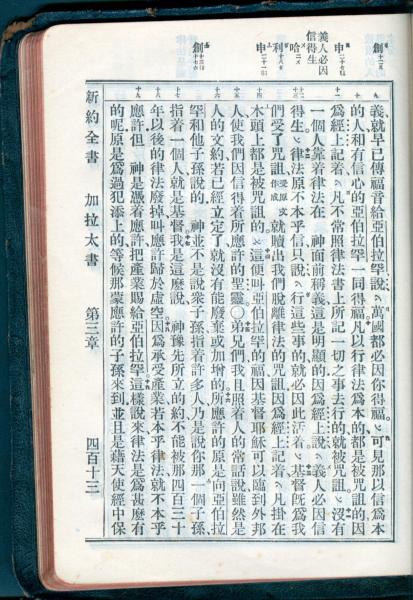 創
申
義人必因
信得生
哈
利
申
創
義就早已傳福音給亞伯拉罕說、萬國都必因你得福、可見那以信爲本
的人和有信心的亞伯拉罕一同得福、凡以行律法爲本的都是被咒詛、因
爲經上記着、凡不常照律法書上所記一切之事去行的就被咒詛、沒有
一個人靠着律法在　神面前稱義這是明顯的因爲經上說、義人必因信
得生、律法原不本乎信只說、行這些事的就必因此活着、基督既爲我
們受了咒詛受原文作成就贖出我們脫離律法的咒詛因爲經上記着、凡掛在
木頭上都是被咒詛的、這便叫亞伯拉罕的福因基督耶穌可以臨到外邦
人使我們因信得着所應許的聖靈○弟兄們我且照着人的常話說雖然是
人的文約若已經立定了就沒有能廢棄或加增的所應許的原是向亞伯拉
罕和他子孫說的、　神並不是說衆子孫指着許多人乃是說你那一個子孫、
指着一個人就是基督我是這麼說、　神豫先所立的約不能被那四百三十
年以後的律法廢掉叫應許歸於虛空因爲承受產業若本乎律法就不本乎
應許但　神是憑着應許把產業賜給亞伯拉罕這樣說來律法是爲甚麼有
的呢原是爲過犯添上的等候那蒙應許的子孫來到並且是藉天使經中保
新約全書　加拉太書　第三章　四百十三